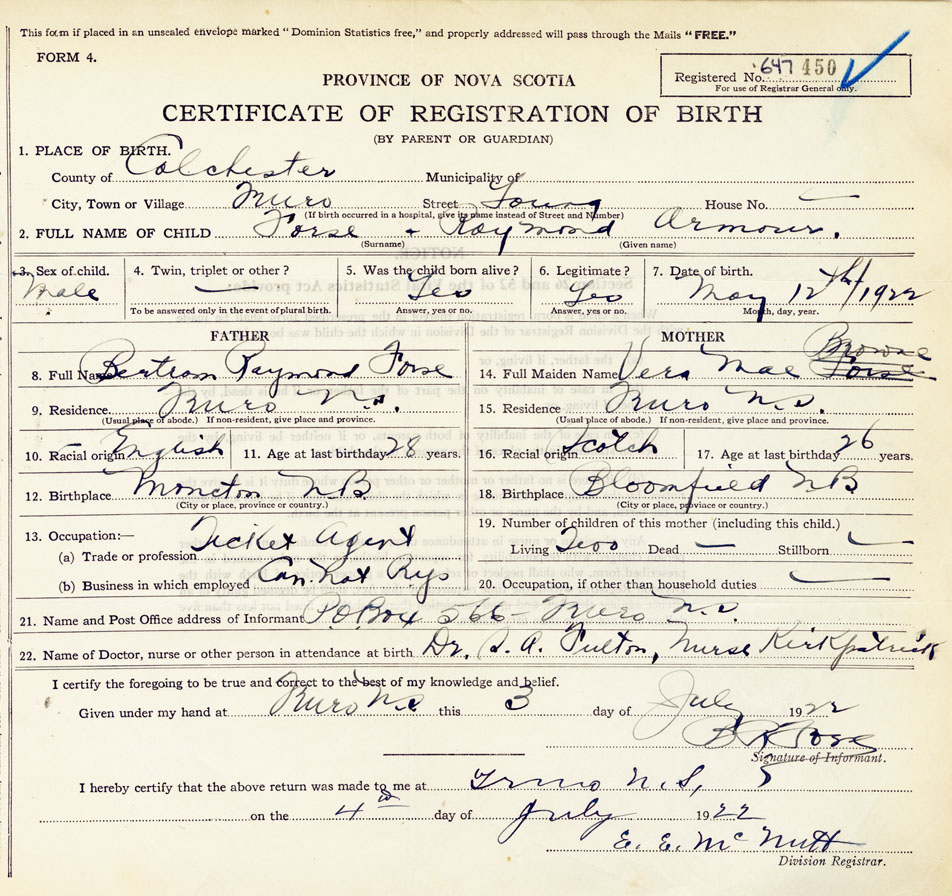 This form if placed in an unsealed envelope marked "Dominion Statistics free," and properly addressed will pass through the Mails "FREE."
FORM 4.
Registered No. 647 450
For use of Registrar General only.
PROVINCE OF NOVA SCOTIA
CERTIFICATE OF REGISTRATION OF BIRTH
(BY PARENT OR GUARDIAN)
1. PLACE OF BIRTH.
County of Colchester Municipality of
City, Town or Village Truro Street Young House No. —
(If birth occurred in a hospital, give its name instead of Street and Number)
2. FULL NAME OF CHILD Forse - Raymond Armour.
(Surname) (Given name)
3. Sex of child. 4. Twin, triplet or other? 5. Was the child born alive? 6. Legitimate? 7. Date of birth.
Male — Yes Yes May 12th/1922
To be answered only in the event of plural birth. Answer, yes or no. Answer, yes or no. Month, day, year.
FATHER MOTHER
Browne
8. Full Name Bertram Raymond Forse 14. Full Maiden Name Vera Mae Forse
9. Residence Truro N.S. 15. Residence Truro N.S.
(Usual place of abode.) If non-resident, give place and province. (Usual place of abode.) If non-resident, give place and province.
10. Racial origin English 11. Age at last birthday 28 years. 16. Racial origin Scotch 17. Age at last birthday 26 years.
12. Birthplace Moncton N.B 18. Birthplace Bloomfield N.B
(City or place, province or country.) (City or place, province or country.)
13. Occupation:— 19. Number of children of this mother (including this child.)
(a) Trade or profession Ticket Agent Living Two Dead — Stillborn —
(b) Business in which employed Can. Nat Rys 20. Occupation, if other than household duties —
21. Name and Post Office address of Informant P.O. Box 566 - Truro N.S
22. Name of Doctor, nurse or other person in attendance at birth Dr. S. A. Fulton, Nurse Kirkpatrick
I certify the foregoing to be true and correct to the best of my knowledge and belief.
Given under my hand at Truro N.S this 3 day of July 1922
B R Forse
Signature of Informant.
I hereby certify that the above return was made to me at Truro N.S,
on the 4th day of July 1922
E. E. McNutt
Division Registrar.